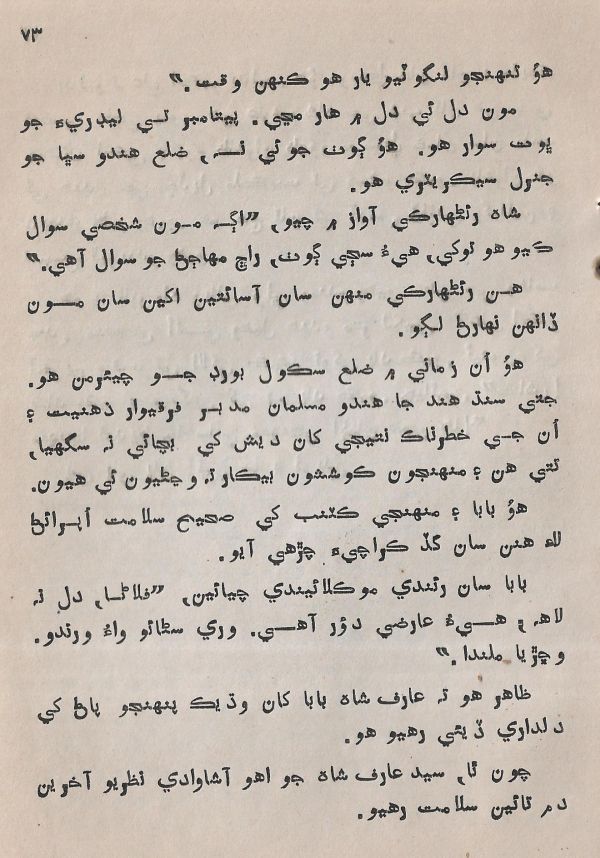 ۷۳
هوُ تنهنجو لنگوٽيو يار هو ڪنهن وقت.”
مون دل ئي دل ۾ هار مڃي. پيتامبر تسي ليڊريءَ جو
ڀوت سوار هو. هوُ ڳوٺ جو ئي نـه، ضلع هندو سڀا جو
جنرل سيڪريٽري هو.
شاه رئڻهارڪي آواز ۾ چيو، ”اڳـ مـون شخصي سوال
ڪيو هو توکي، هيءُ سڄي ڳوٺ، راڄ مهاڄڻ جو سوال آهي.”
هـن رئڻهارڪي منهن سان آسائتين اکين سان مــون
ڏانهن نهارڻ لڳو.
هوُ اُن زماني ۾ ضلع سڪول بورڊ جــو چيئرمن هو.
جتي سنڌ هند جا هندو مسلمان مدبـر فرقيوار ذهنيت ۽
اُن جـي خطرناڪ نتيجي کان ديش کي بچائي نہ سگهيا،
تتي هن ۽ منهنجون ڪوششون بيڪار نہ وڃڻيون ئي هيون.
هوُ بابا ۽ منهنجي ڪٽنب کي صحيح سلامت اُپرائڻ
لاءِ هنن سان گڏ ڪراچيءَ چڙهي آيو.
بابا سان رئندي موڪلائيندي چيائين، ”فلاڻا، دل نہ
لاهہ ۾ هــيءُ عارضي دوُر آهــي. وري سڻائو واءُ ورندو.
وڇڙيا ملندا.”
ظاهر هو تہ عارف شاه بابا کان وڌيڪ پنهنجو پاڻ کي
دلداري ڏيئي رهيو هو.
چون ٿا، سيد عارف شاه جو اهو آشاوادي نظريو آخرين
دم تائين سلامت رهيو.